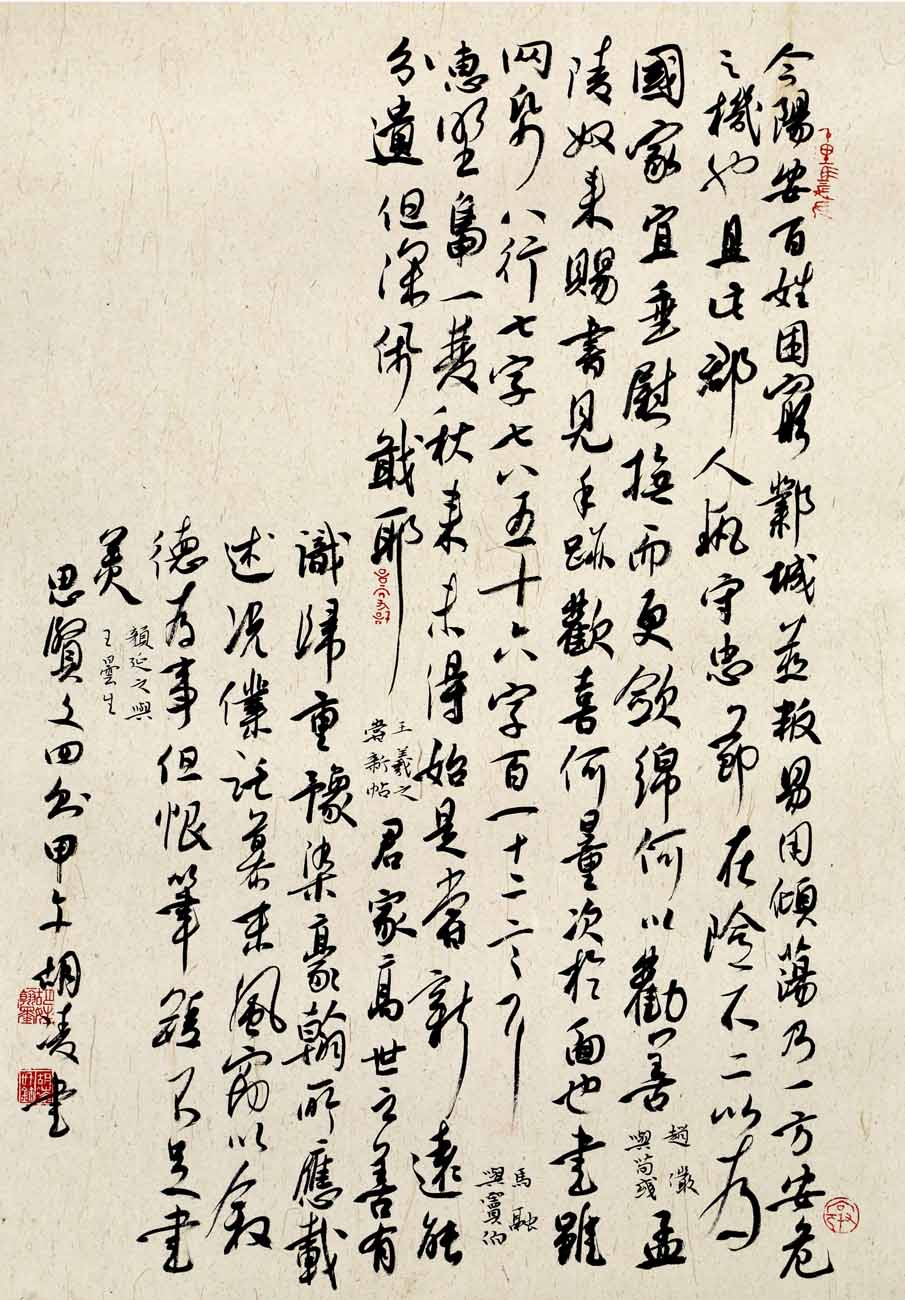 今陽安百姓困窮鄰城並叛易用傾蕩乃一方安危
之機也且此郡人執守忠節在險不二以為
國家宜垂慰撫而更斂綿何以勸善
趙儼
與荀彧
孟
陵奴来賜書見手跡歡喜何量次於面也書雖
两紙八行七字七八五十六字百一十二言耳
馬融
與竇伯向
惠 一 秋来未得始是嘗新遠能
分遺但深佩戢耶
王羲之
嘗新帖
君家高世之善有
識歸重豫染豪翰所應載
述況僕託慕末風竊以叙
德為事但恨筆短不足書
美
顏延之與
王曇生
思賢文四則甲午胡凌書